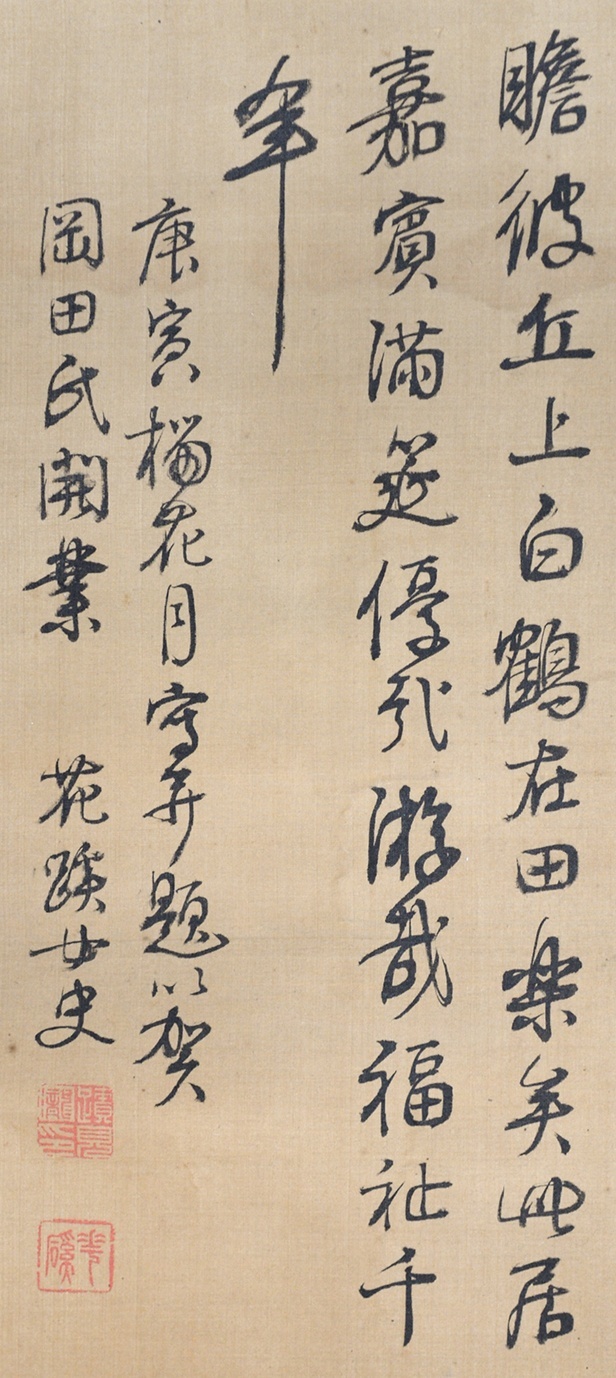 瞻彼丘上白鶴在田楽矣此居
嘉賓満筵優哉游哉福祉千
年
庚寅榴花月写并題以賀
岡田氏開業 花蹊女史